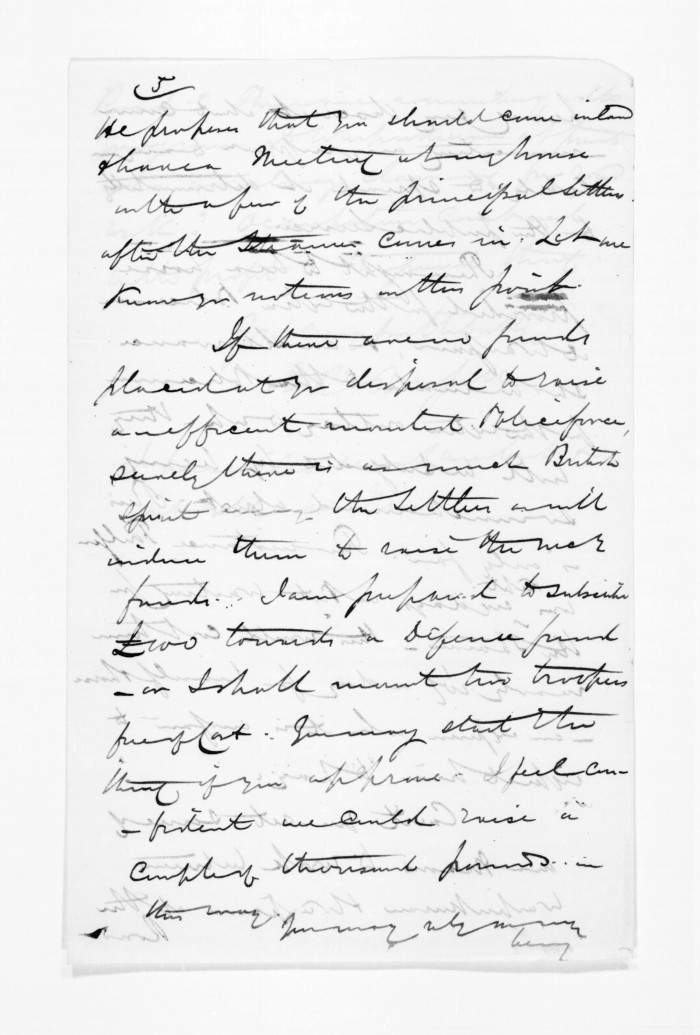 5
He proposes that you should come inland
& have a Meeting at my house
with a few of the principal Settlers
after the Steamer comes in. Let me
know yr notions on this point.
If there are no funds
placed at yr disposal to raise
an efficient mounted Police force,
surely there is as much British
Spirit among the Settlers as will
induce them to raise the necy
funds. I am prepared to subscribe
£100 towards a Defence fund
- or I shall mount two troopers
free of Cost. You may start the
thing if you approve. I feel con-
-fident we could raise a
Couple of thousand pounds in
this way. You may rely on my
being